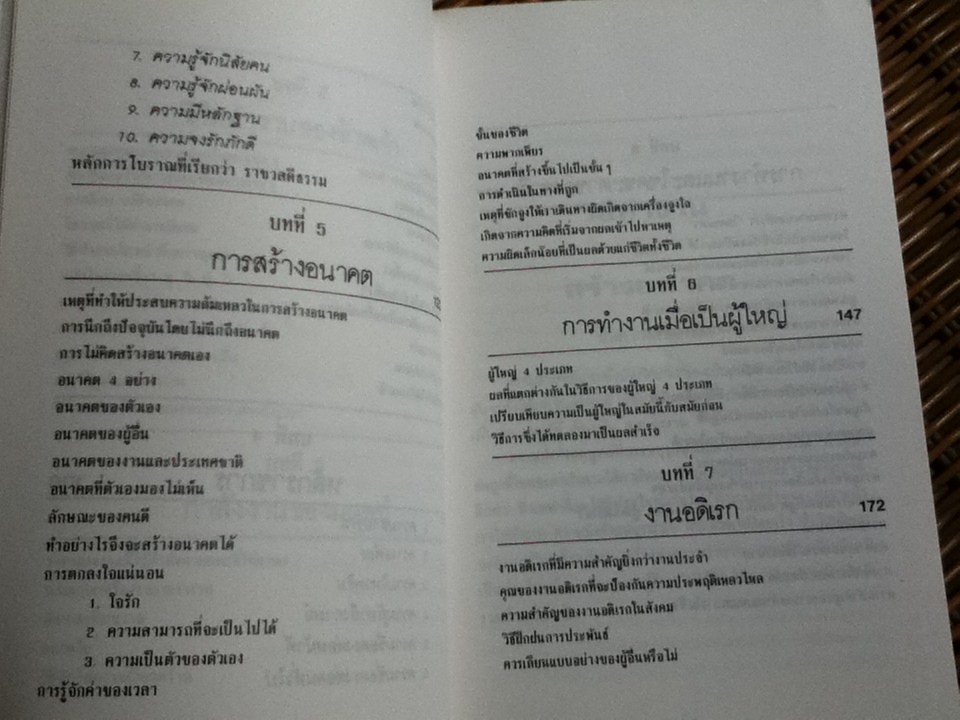 7. ความรู้จักนิสัยคน
8. ความรู้จักผ่อนผัน
9. ความมีหลักฐาน
10. ความจงรักภักดี
หลักการโบราณที่เรียกว่า ราชวสดีธรรม
บทที่ 5
การสร้างอนาคต
เหตุที่ทำให้ประสบความล้มเหลวในการสร้างอนาคต
การนึกถึงปัจจุบันโดยไม่นึกถึงอนาคต
การไม่คิดสร้างอนาคตเอง
อนาคต 4 อย่าง
อนาคตของตัวเอง
อนาคตของผู้อื่น
อนาคตของงานและประเทศชาติ
อนาคตที่ตัวเองมองไม่เห็น
ลักษณะของคนดี
ทำอย่างไรจึงจะสร้างอนาคตได้
การตกลงใจแน่นอน
1. ใจรัก
2 ความสามารถที่จะเป็นไปได้
3. ความเป็นตัวของตัวเอง
การรู้จักค่าของเวลา
ขั้นของชีวิต
ความพากเพียร
อนาคตที่สร้างขึ้นไปเป็นขั้น ๆ
การดำเนินในทางที่ถูก
เหตุที่ชักจูงให้เราเดินทางผิดเกิดจากเครื่องจูงใจ
เกิดจากความคิดที่เริ่มจากผลเข้าไปหาเหตุ
ความผิดเล็กน้อยที่เป็นผลด้วยแก่ชีวิตทั้งชีวิต
บทที่ 6
การทำงานเมื่อเป็นผู้ใหญ่ 147
ผู้ใหญ่ 4 ประเภท
ผลที่แตกต่างกันในวิธีการของผู้ใหญ่ 4 ประเภท
เปรียบเทียบความเป็นผู้ใหญ่ในสมัยนี้กับสมัยก่อน
วิธีการซึ่งได้ทดลองมาเป็นผลสำเร็จ
บทที่ 7
งานอดิเรก 172
งานอดิเรกที่มีความสำคัญยิ่งกว่างานประจำ
คุณของงานอดิเรกที่จะป้องกันความประพฤติเหลวไหล
ความสำคัญของงานอดิเรกในสังคม
วิธีฝึกฝนการประพันธ์
ควรเลียนแบบอย่างของผู้อื่นหรือไม่